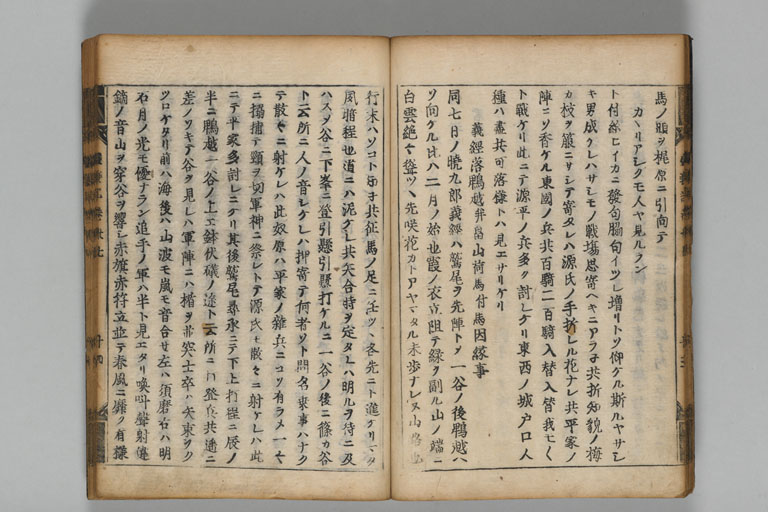 馬ノ頭ヲ梶原ニ引向テ
カヽリアレクモ人ヤ見ルラン
ト付給ヒイカニ發句脇句イツレ増リトソ仰ケル斯ルヤサシ
キ男成クレハサシモノ戰場思寄ヘキニアラ子共折知貌ノ梅
カ枝ヲ箙ニサシテ寄タレハ源氏ノ手折レル花ナレ共平家ノ
陣ニソ香ケル東國ノ兵共百騎二百騎入替入替我モ〱
ト戰ケリ此ニテ源平ノ兵多ク討レケリ東西ノ城戸口人
種ハ盡共可落様トハ見エサリケリ
義經落鵯越并畠山荷馬付馬因縁事
同七日ノ曉九郎義經ハ鷲尾ヲ先陣トシ一谷ノ後鵯越ヘ
ソ向ケル比ハ二月ノ始也霞ノ衣立阻テ緑ヲ副ル山ノ端ニ
白雲絶々聳ツヽ先咲花カトアヤマタル未歩ナレヌ山路
行末ハソコト知子共征馬ノ足ニ任ツヽ各先ニト進ケリ
風晴程也道ニハ泥クレ共矢合時ヲ定タレハ明ルヲ待ニ及
ハスヲ谷ニ下峯ニ登引懸引懸打ケルニ一谷ノ後ニ篠カ谷
ト云所ニ人ノ音シケレハ押寄テ何者ソト問名乗事ハナク
テ散々ニ射ケレハ此奴原ハ平家ノ雜兵ニコソ有ラメ一々
ニ搦捕テ頸ヲ切軍神ニ祭レトテ源氏モ散々ニ射ケレハ此
ニテ平家多討レニケリ其後鷲尾尋承ニテ下上打程ニ辰ノ
半ニ鵯越一谷ノ上エ鉢伏礒ノ途ト云所ニ打登兵共遙ニ
差ノソキテ谷ヲ見レハ軍陣ニハ楯ヲ並突士卒ハ矢束ヲク
ツロケタリ前ハ海後ハ山波モ嵐モ音合セ左ハ須磨右ハ明
石月ノ光モ優ナラン追手ノ軍ハ半ト見エタリ喚叫聲射違
鏑ノ音山ヲ穿谷ヲ響シ赤旗赤符立並テ春風ニ靡ク有様